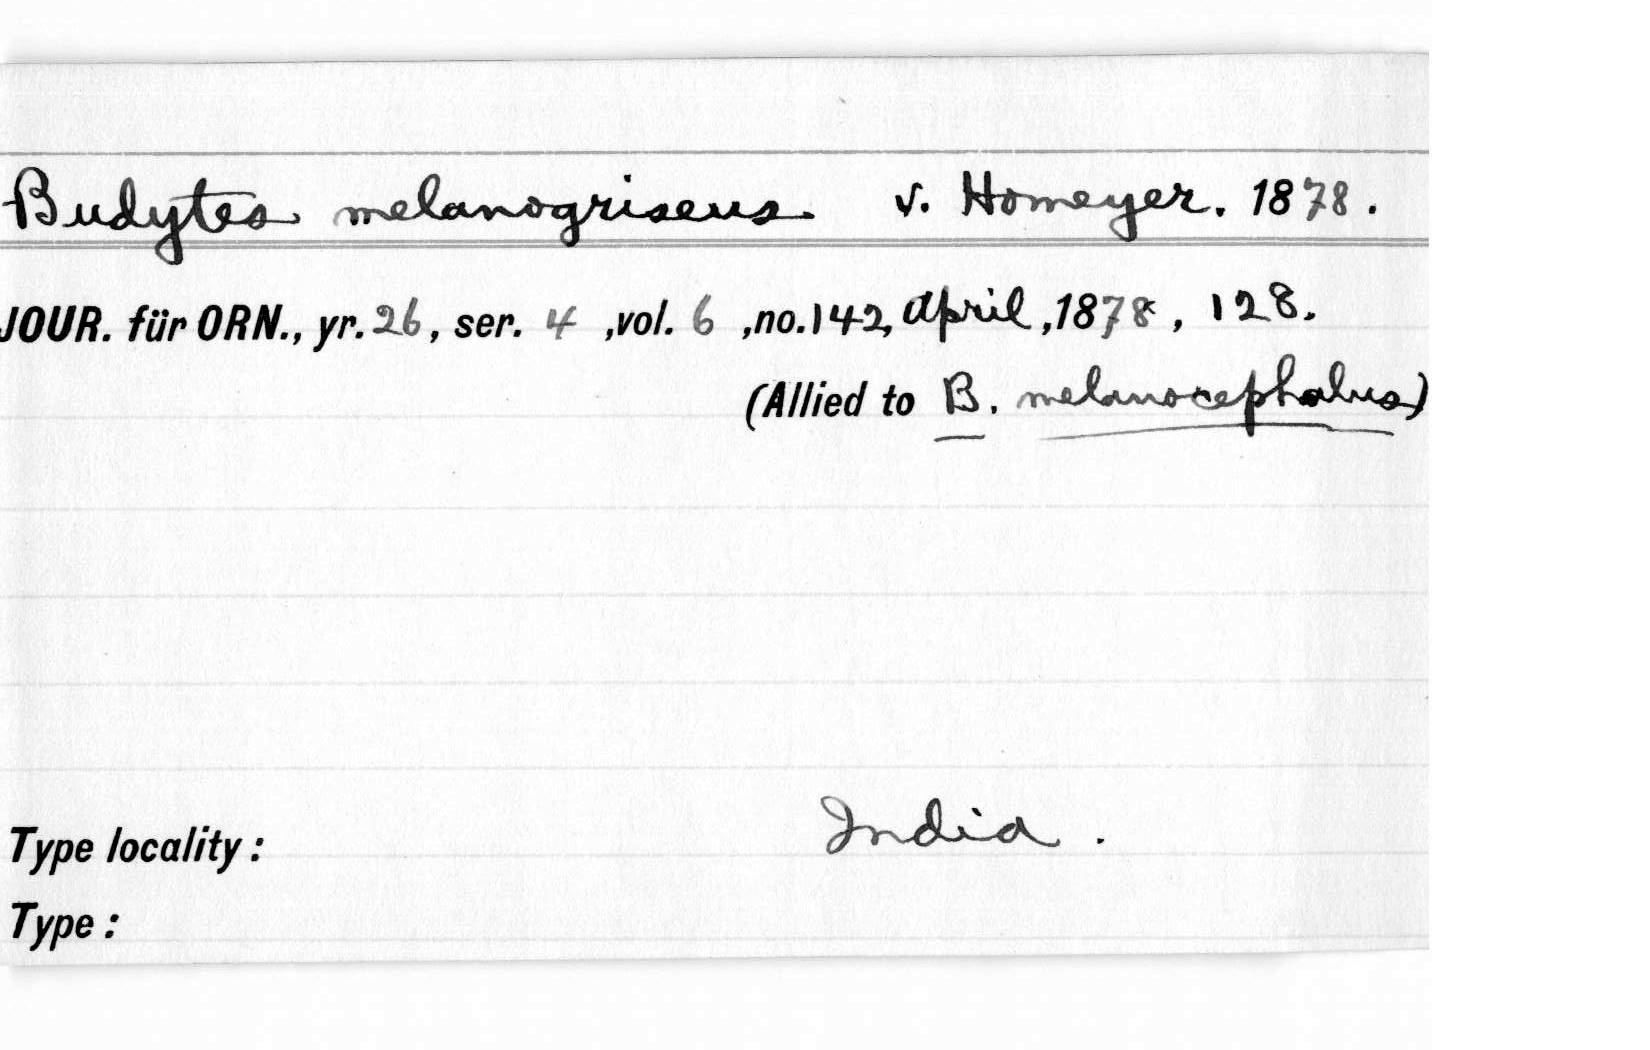 Budytes melanogriseus v. Homeyer. 1878.
JOUR. für ORN., yr. 26, ser. 4 ,vol. 6 ,no. 142, April ,1878 , 128.
(Allied to B. melanocephalus)
Type locality : India .
Type :